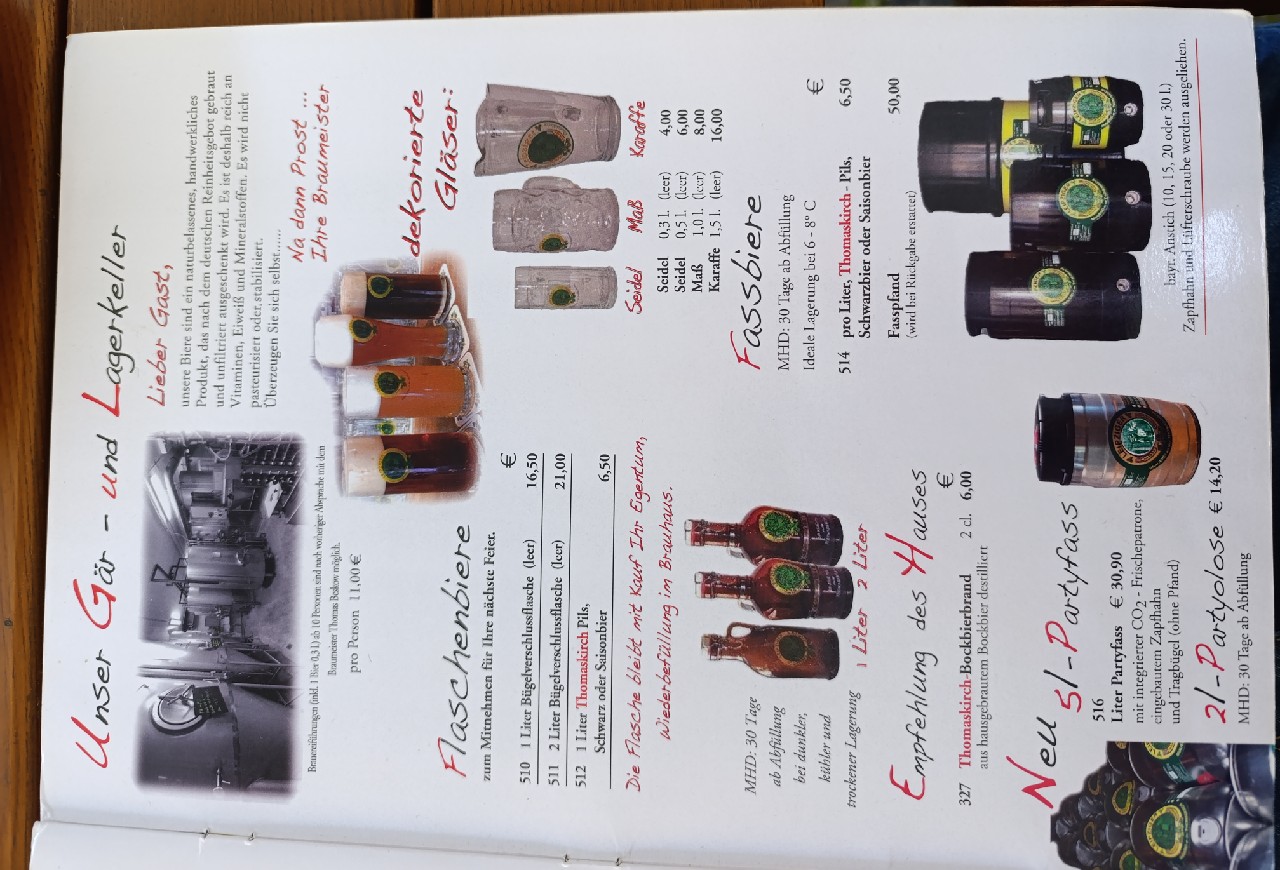 Unser Gär - und Lagerkeller
Lieber Gast,
unsere Biere sind ein naturbelassenes, handwerkliches
Produkt, das nach dem deutschen Reinheitsgebot gebraut
und unfiltriert ausgeschenkt wird. Es ist deshalb reich an
Vitaminen, Eiweiß und Mineralstoffen. Es wird nicht
pasteurisiert oder stabilisiert.
Überzeugen Sie sich selbst......
Na dann Prost ...
Ihre Braumeister
Brauereiführungen (inkl. 1 Bier 0,3 l) ab 10 Personen sind nach vorheriger Absprache mit dem
Braumeister Thomas Baskow möglich.
pro Person 11,00 €
Flaschenbiere
zum Mitnehmen für Ihre nächste Feier.
€
510 1 Liter Bügelverschlussflasche (leer) 16,50
511 2 Liter Bügelverschlussflasche (leer) 21,00
512 1 Liter Thomaskirch Pils,
Schwarz oder Saisonbier 6,50
Die Flasche bleibt mit Kauf Ihr Eigentum,
Wiederbefüllung im Brauhaus.
MHD: 30 Tage
ab Abfüllung
bei dunkler,
kühler und
trockener Lagerung
1 Liter 2 Liter
Empfehlung des Hauses
€
327 Thomaskirch-Bockbierbrand 2 cl. 6,00
aus hausgebrautem Bockbier destilliert
Neu 5l-Partyfass
516
Liter Partyfass € 30,90
mit integrierter CO2 - Frischepatrone,
eingebautem Zapfhahn
und Tragbügel (ohne Pfand)
2l-Partydose € 14,20
MHD: 30 Tage ab Abfüllung
dekorierte
Gläser:
Seidel Maß Karaffe
Seidel 0,3 l. (leer) 4,00
Seidel 0,5 l. (leer) 6,00
Maß 1,0 l. (leer) 8,00
Karaffe 1,5 l. (leer) 16,00
Fassbiere
MHD: 30 Tage ab Abfüllung
Ideale Lagerung bei 6 - 8° C
€
514 pro Liter, Thomaskirch - Pils, 6,50
Schwarzbier oder Saisonbier
Fasspfand 50,00
(wird bei Rückgabe erstattet)
bayr. Anstich (10, 15, 20 oder 30 l.)
Zapfhahn und Lüfterschraube werden ausgeliehen.